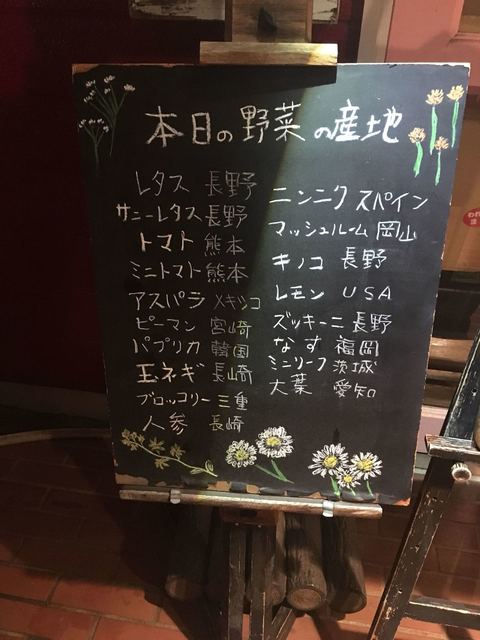 本日の野菜の産地
レタス 長野
サニーレタス 長野
トマト 熊本
ミニトマト 熊本
アスパラ メキシコ
ピーマン 宮崎
パプリカ 韓国
玉ネギ 長崎
ブロッコリー 三重
人参 長崎
ニンニク スペイン
マッシュルーム 岡山
キノコ 長野
レモン USA
ズッキーニ 長野
なす 福岡
ミニリーフ 茨城
大葉 愛知